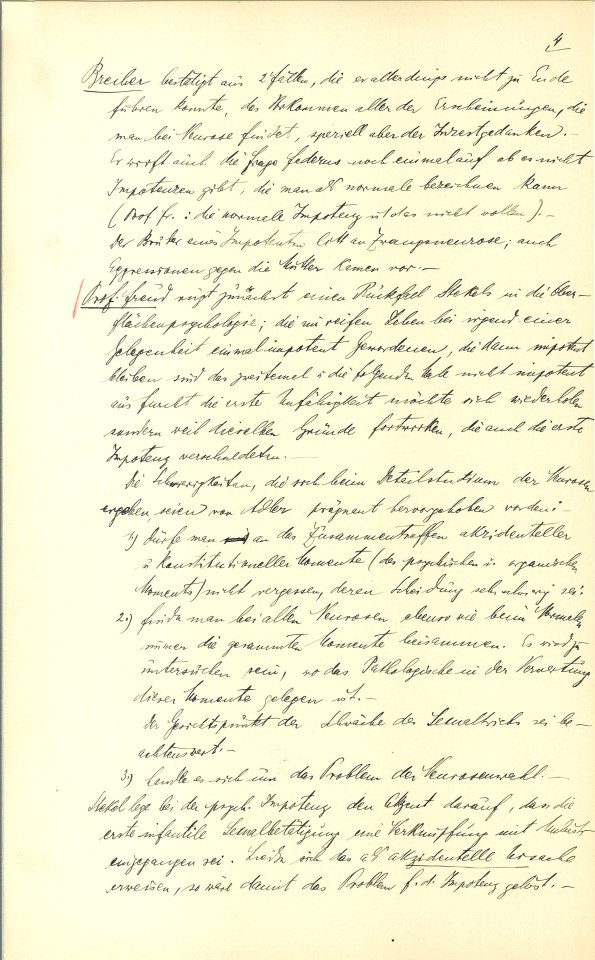 4
Brecher bestätigt aus 2 Fällen, die er allerdings nicht zu Ende
führen konnte, das Vorkommen aller der Erscheinungen, die
man bei Neurose findet, speziell aber der Inzestgedanken. –
Er wirft auch die Frage Federns noch einmal auf ob es nicht
Impotenzen gibt, die man als normale bezeichnen kann
(Prof. Fr. : die normale Impotenz ist das nicht wollen). –
Der Bruder eines Impotenten litt an Zwangsneurose; auch
Aggressionen gegen die Mutter kamen vor. –
Prof. Freud rügt zunächst einen Rückfall Stekels in die Ober-
flächenpsychologie; die im reifen Leben bei irgend einer
Gelegenheit einmal impotent Gewordenen, die dann impotent
bleiben sind das zweitemal u die folgenden Male nicht impotent
aus Furcht die erste Unfähigkeit möchte sich wiederholen
sondern weil dieselben Gründe fortwirken, die auch die erste
Impotenz verschuldeten. –
Die Schwierigkeiten, die sich beim Detailstudium der Neurosen
ergeben, seien von Adler prägnant hervorgehoben worden: –
1.) dürfe man an das Zusammentreffen akzidenteller
u Konstitutioneller Momente (des psychischen u. organischen
Moments) nicht vergessen, deren Scheidung sehr schwierig sei.
2.) finde man bei allen Neurosen ebenso wie beim Normalen
immer die gesammten Momente beisammen. Es wird zu
untersuchen sein, wo das Pathologische in der Verwertung
dieser Momente gelegen ist. –
Der Gesichtspunkt der Schwäche des Sexualtriebs sei be-
achtenswert. –
3.) handle es sich um das Problem der Neurosenwahl. –
Stekel lege bei der psych. Impotenz den Akzent darauf, dass die
erste infantile Sexualbetätigung eine Verknüpfung mit Unlust
eingegangen sei. Ließe sich das als akzidentelle Ursache
erweisen, so wäre damit das Problem f. d. Impotenz gelöst. –